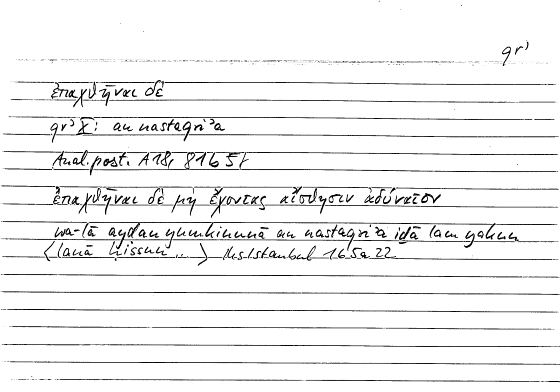 qrʾ
ἐπαχθῆναι δὲ
qrʾ X: an nastaqriʾa
Anal. post. A18, 81b5f
ἐπαχθῆναι δὲ μὴ ἔχοντας αἴσθησιν ἀδύνατον
wa-lā ayḍan yumkinunā an nastaqriʾa iḏā lam yakun
⟨lanā ḥissun ..⟩ Hs Istanbul 165a22